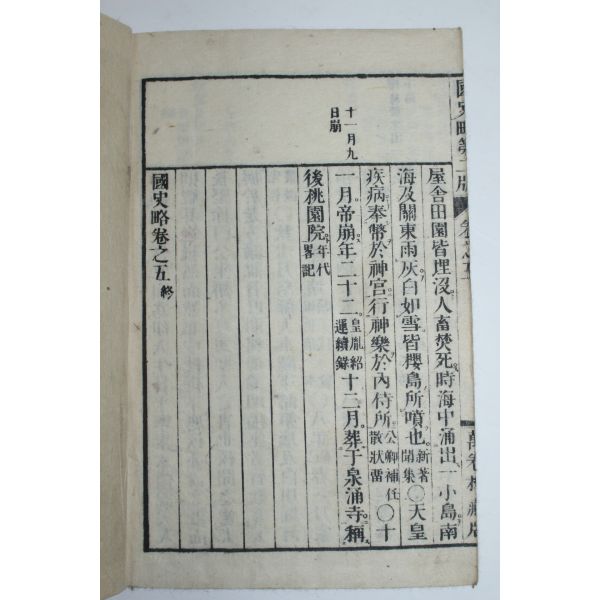 國史略第二版 卷之五 萬卷樓藏版
屋舍田園皆埋沒人畜焚死時海中涌出一小島南
海及關東雨灰白如雪皆櫻島所噴也新著聞集〇天皇
疾病奉幣於神宮行神樂於內侍所公卿補任散狀雷〇十
一月帝崩年二十二皇胤紹運續錄十二月葬于泉涌寺稱
後桃園院年代畧記
十一月九日崩
國史略卷之五終